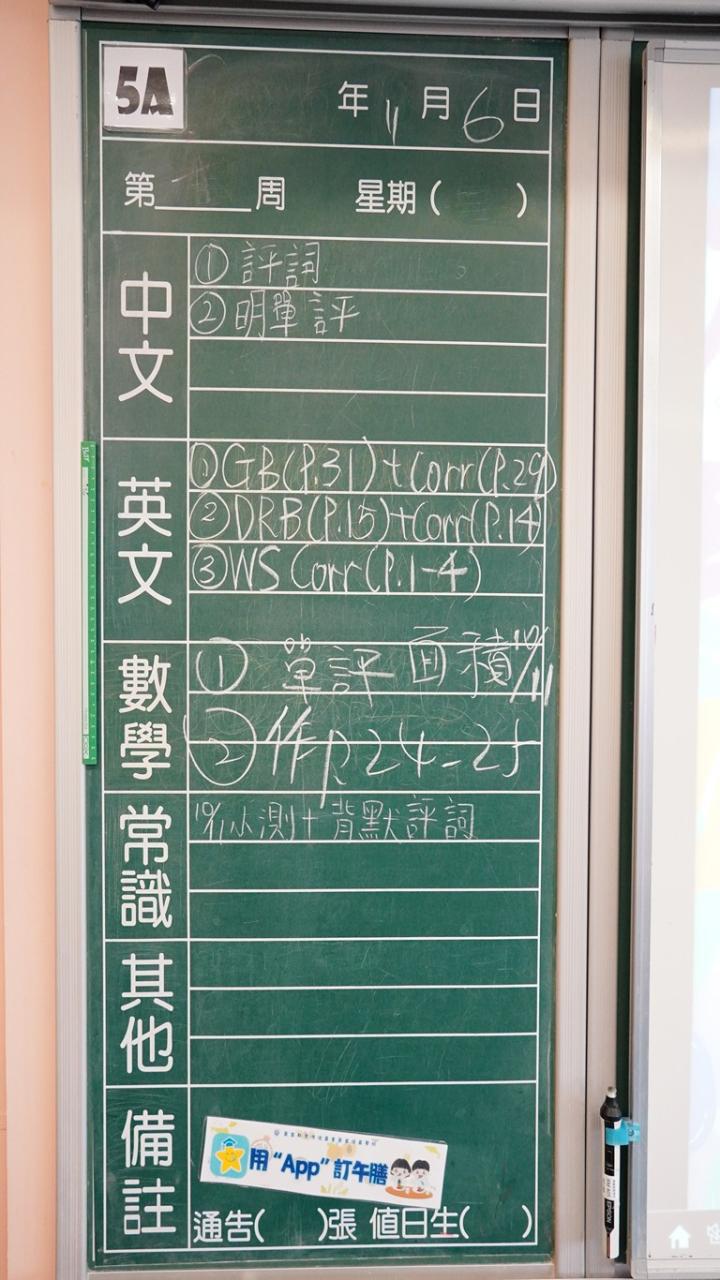 5A 年 11 月 6 日
第 周 星期( )
中文
① 評詞
② 明單評
英文
① GB(P.31)+Corr(P.29)
② DRB(P.15)+Corr(P.14)
③ WS Corr(P.1-4)
數學
① 單評 面積 10/11
② 作p.24-25
常識
10/11 小測+背默評詞
其他
備註
用“App”訂午膳
通告( )張 值日生( )
EPSON